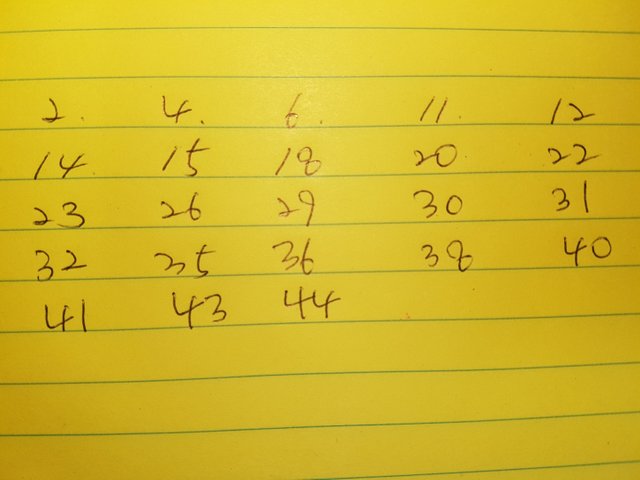 2. 4. 6. 11. 12
14 15 18 20. 22
23 26 29 30 31
32 35 36 38 40
41 43 44